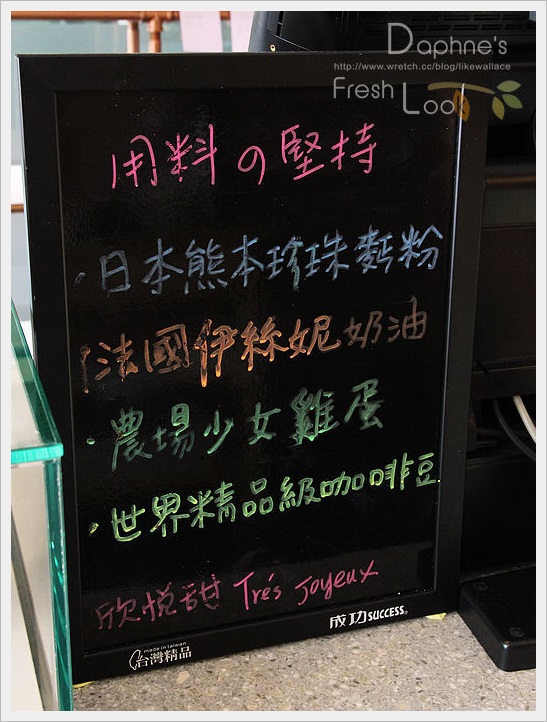 Daphne's
http://www.wretch.cc/blog/likewallace
Fresh Look
用料の堅持
·日本熊本珍珠麵粉
·法國伊絲妮奶油
·農場少女雞蛋
·世界精品級咖啡豆
欣悅甜 Trés Joyeux
成功 SUCCESS®
made in taiwan
台灣精品